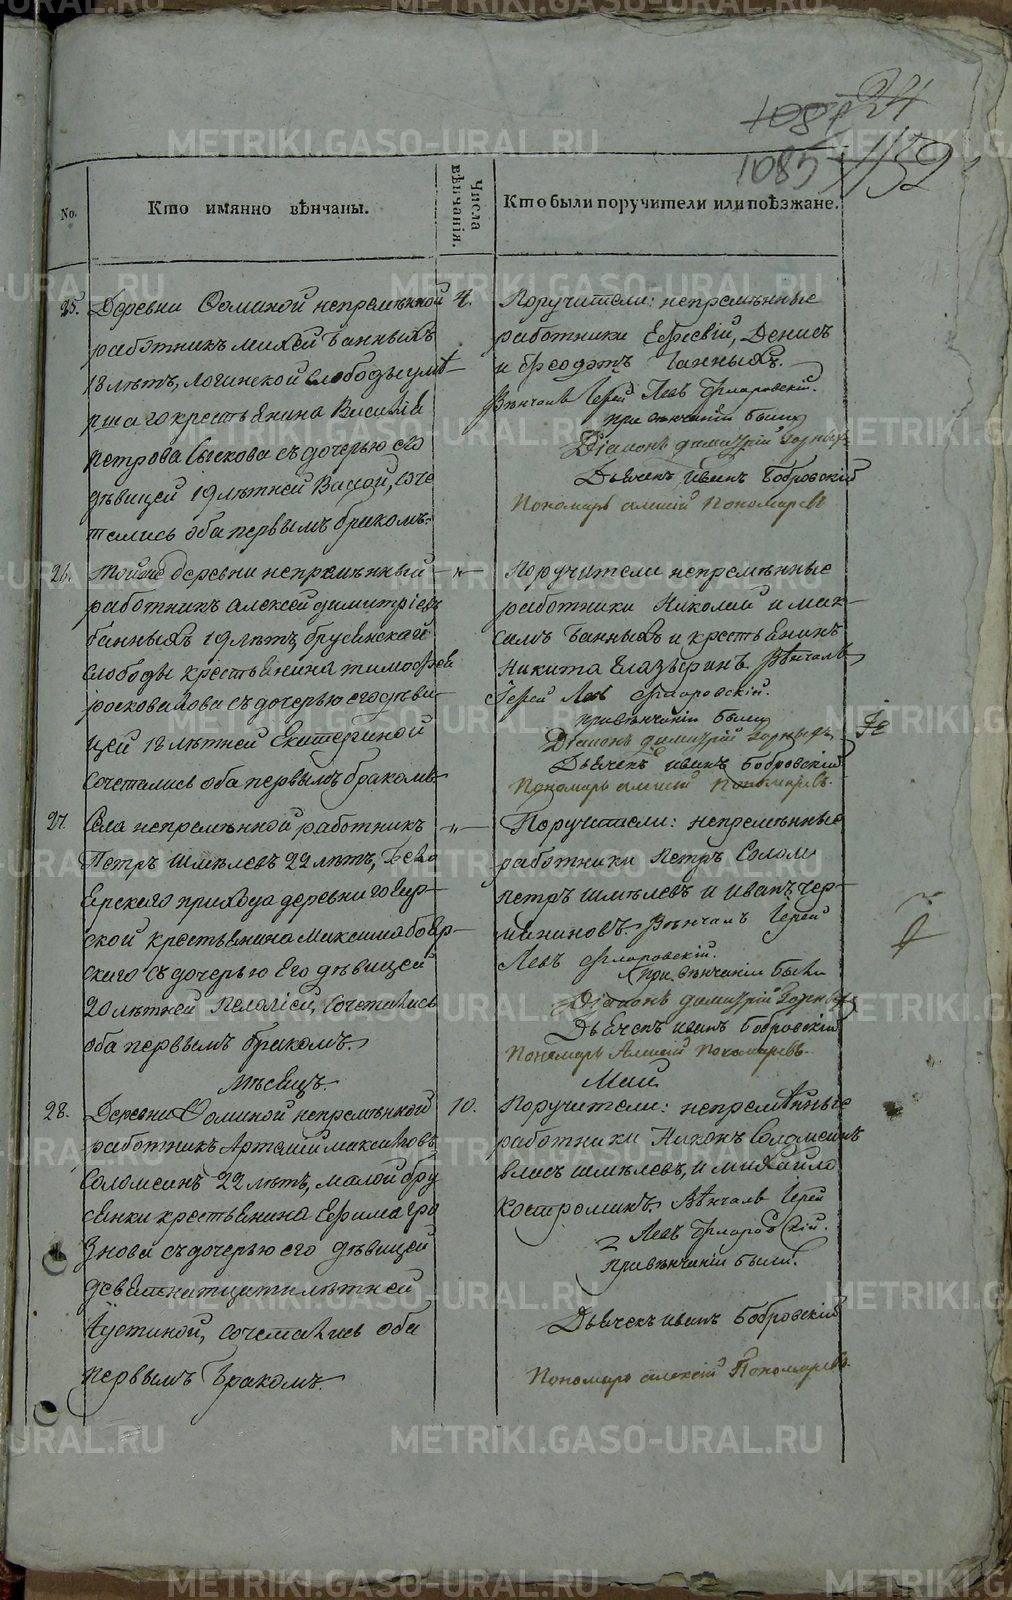 24
1152
1085
No.
Кто имянно вѣнчаны.
Числа вѣнчанія.
Кто были поручители или поѣзжане.
25.
Деревни Ѳоминой непремѣнной
работникъ Банныхъ
18 лѣтъ, Логинской слободы умѣ
ршаго крестьянина Василія
Петрова съ дочерью его
дѣвицей 19 лѣтней Вассой, соче
тались оба первымъ бракомъ.
4.
Поручители: непремѣнные
работники Денисъ
и Ѳеодотъ Банныхъ.
Вѣнчалъ Іерей Левъ Флоровскій.
при вѣнчаніи были
Діаконъ Димитрій
Дьячекъ Иванъ Бобровскій
Пономарь Алексій Пономаревъ
26.
Тойже деревни непремѣнный
работникъ Алексей Димитріевъ
Банныхъ 19 лѣтъ, брусянской
слободы крестьянина Тимоѳея
съ дочерью его дѣви
цей 18 лѣтней Екатериной
сочетались оба первымъ бракомъ
—„—
Поручители непремѣнные
работники Николай и Мак
симъ Банныхъ и крестьянинъ
Никита Вѣнчалъ
Іерей Левъ Флоровскій.
при вѣнчаніи были
Діаконъ Димитрій
Дьячекъ Иванъ Бобровскій
Пономарь Алексій Пономаревъ.
27.
Села непремѣнной работникъ
Петръ Шмѣлевъ 22 лѣтъ,
прихода деревни
ской крестьянина Максима Бояр
скаго съ дочерью его дѣвицей
20 лѣтней Пелагіей, сочетались
оба первымъ бракомъ.
—„—
Поручители: непремѣнные
работники Петръ
Петръ Шмѣлевъ и Иванъ Чер
Вѣнчалъ Іерей
Левъ Флоровскій.
при вѣнчаніи были
Діаконъ Димитрій
Дьячекъ Иванъ Бобровскій
Пономарь Алексій Пономаревъ.
Мѣсяцъ
Май
28.
Деревни Ѳоминой непремѣнной
работникъ Артемій Максимовъ
Соломеинъ 22 лѣтъ, малой бру
сянки крестьянина Ефима Гря
знова съ дочерью его дѣвицей
девятнатцатилѣтней
Іустиной, сочетались оба
первымъ бракомъ.
10.
Поручители: непремѣнные
работники Никонъ Соломеинъ
Власъ Шмѣлевъ, и Михайло
Костроминъ. Вѣнчалъ Іерей
Левъ Флоровскій.
при вѣнчаніи были.
Дьячекъ Иванъ Бобровскій
Пономарь Алексій Пономаревъ.
METRIKI.GASO-URAL.RU